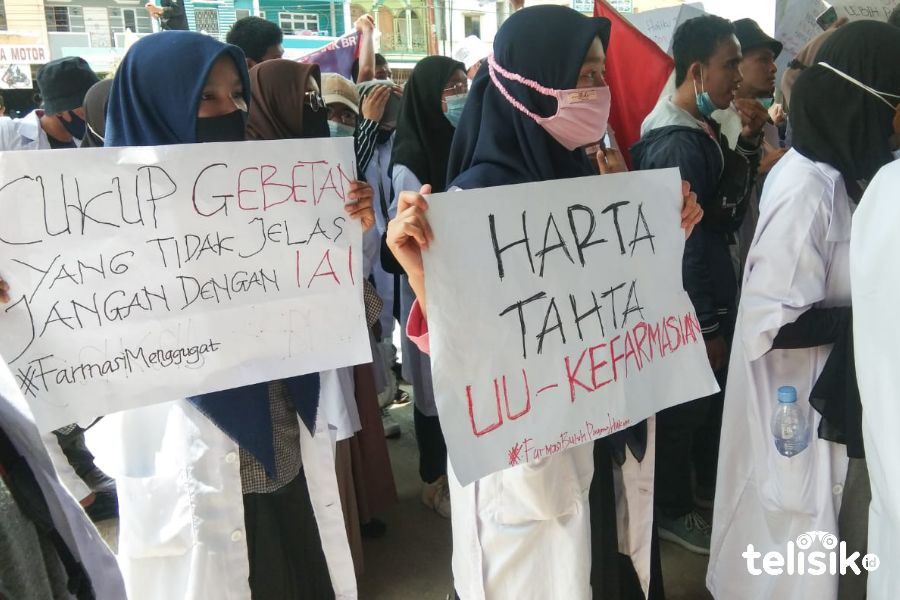 CUKUP GEBETAN
YANG TIDAK JELAS
JANGAN DENGAN IAI
#FarmasiMenggugat
HARTA
TAHTA
UU-KEFARMASIAN
#FarmasiButuhPayungHukum
A MOTOR
telisik.id